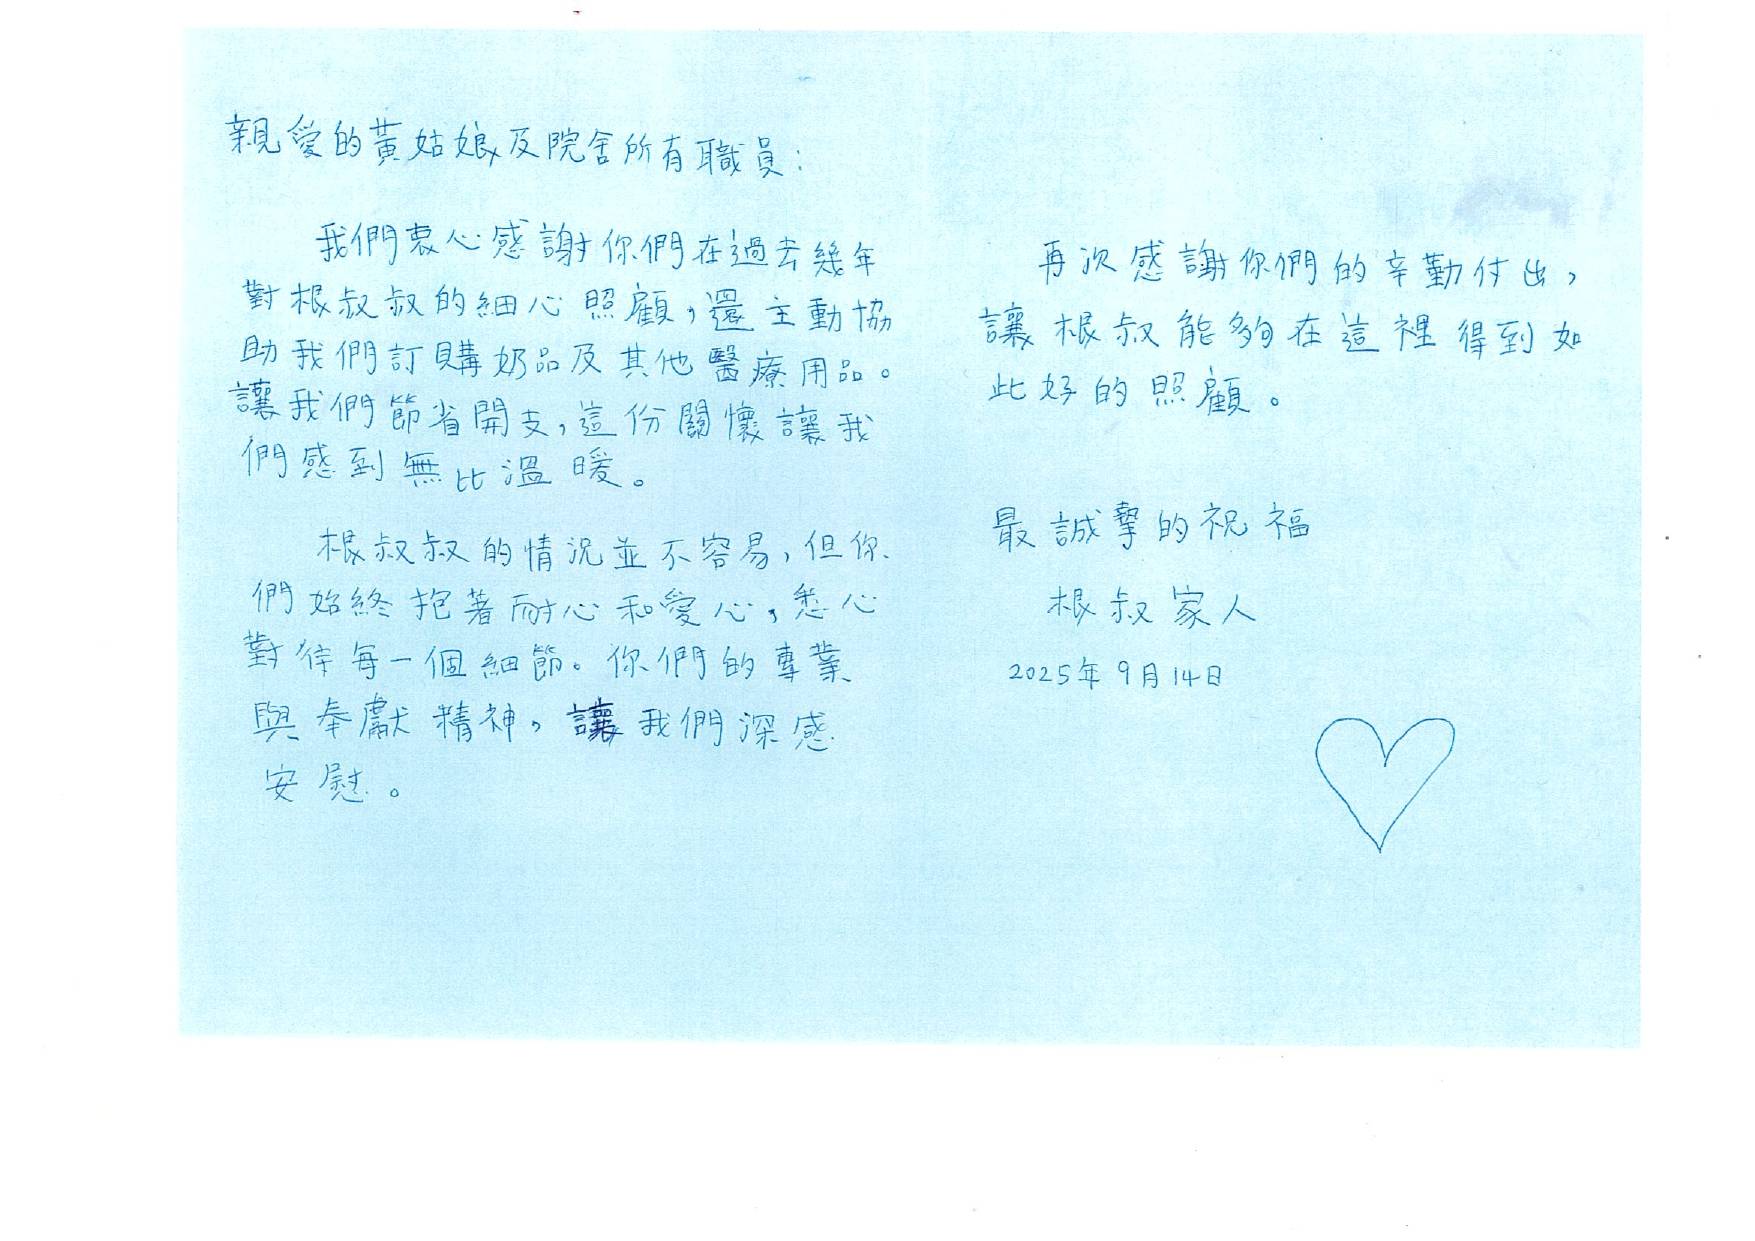 親愛的黃姑娘及院舍所有職員：
我們衷心感謝你們在過去幾年
對根叔叔的細心照顧，還主動協
助我們訂購奶品及其他醫療用品。
讓我們節省開支，這份關懷讓我
們感到無比溫暖。
根叔叔的情況並不容易，但你
們始終抱著耐心和愛心，悉心
對待每一個細節。你們的專業
與奉獻精神，讓我們深感
安慰。
再次感謝你們的辛勤付出，
讓根叔能夠在這裡得到如
此好的照顧。
最誠摯的祝福
根叔家人
2025年9月14日